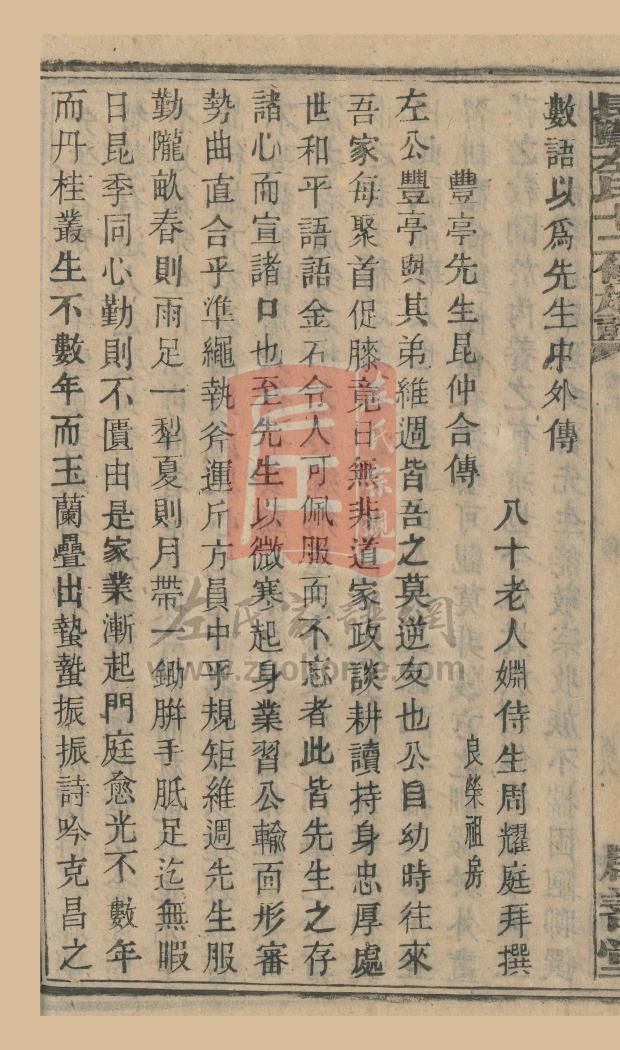 數語以爲先生中外傳
八十老人姻侍生周耀庭拜撰
豐亭先生昆仲合傳
良榮祖房
左公豐亭與其弟維週皆吾之莫逆友也公自幼時往來
吾家每聚首促膝竟日無非道家政談耕讀持身忠厚處
世和平語語金石令人可佩服而不忘者此皆先生之存
諸心而宣諸口也至先生以微寒起身業習公輸面形審
勢曲直合乎準繩執斧運斤方員中乎規矩維週先生服
勤隴畝春則雨足一犁夏則月帶一鋤胼手胝足迄無暇
日昆季同心勤則不匱由是家業漸起門庭愈光不數年
而丹桂叢生不數年而玉蘭疊出蟄蟄振振詩吟克昌之
左氏家譜網
www.zuohome.com